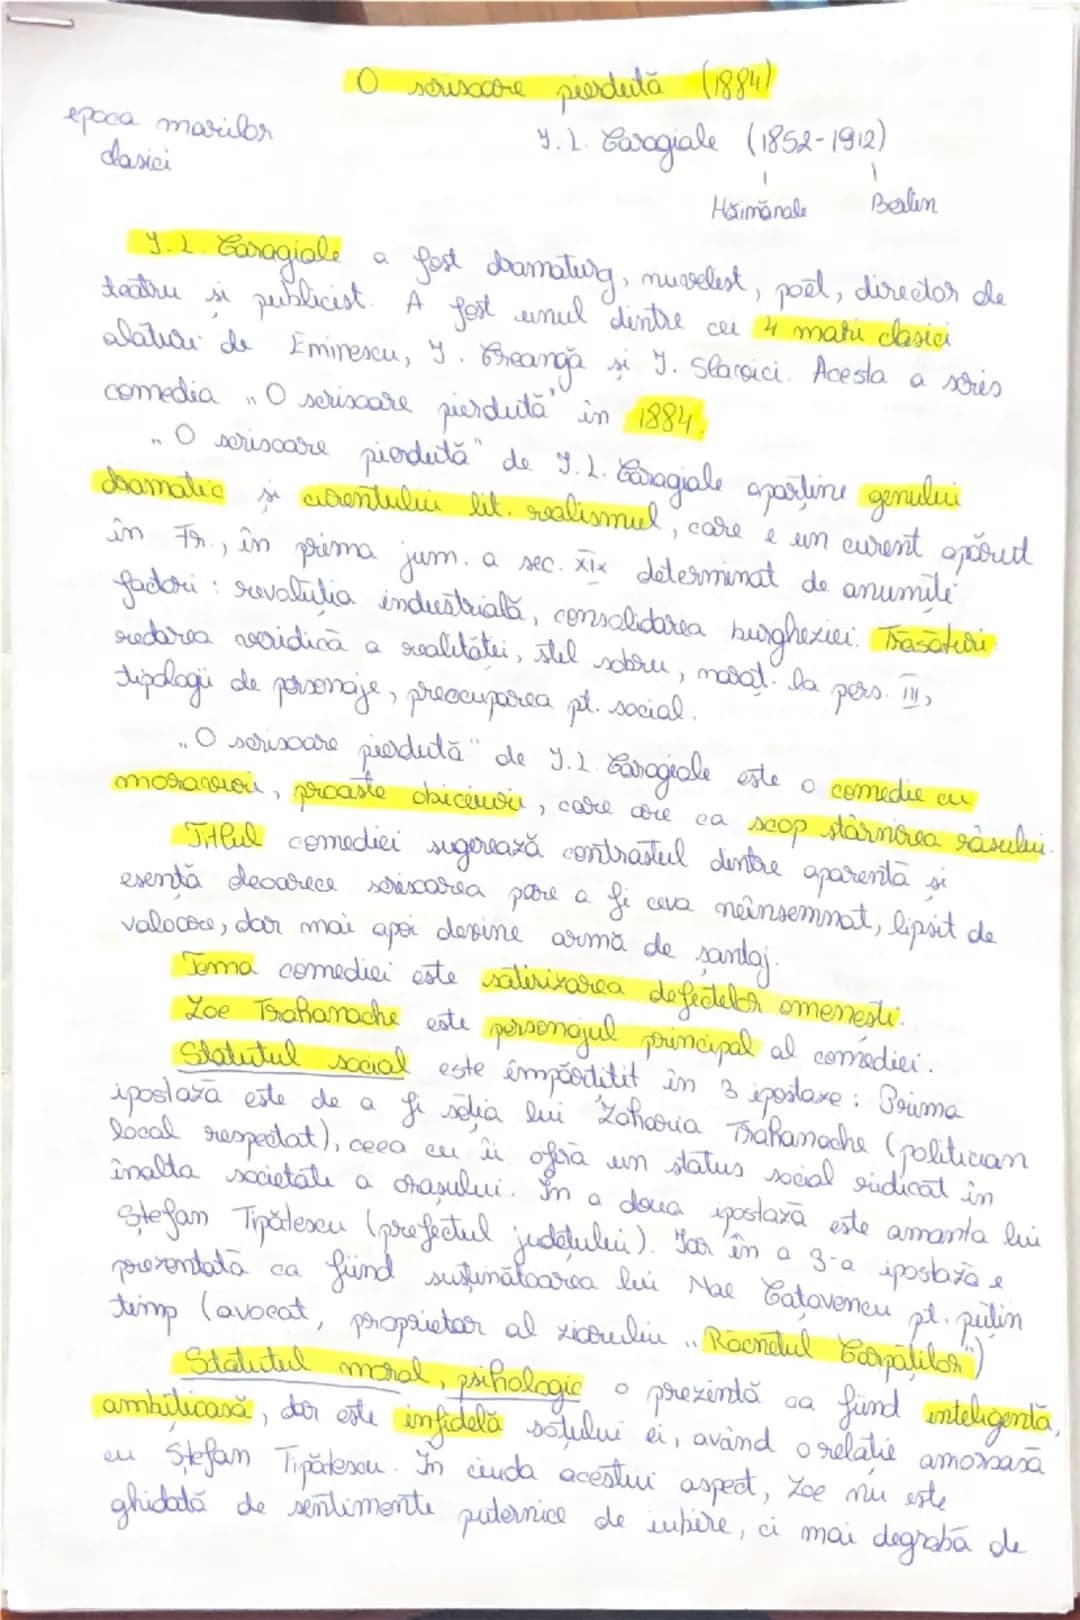 O scrisoare pierdută (1884)
epoca marilor
clasici
I. L. Caragiale (1852-1912)
Haimanale
Berlin
I. L. Caragiale a fost dramaturg, nuvelist, poet, director de
teatru și publicist. A fost unul dintre cei 4 mari clasici
alături de Eminescu, I. Creangă și I. Slavici. Acesta a scris
comedia „O scrisoare pierdută" în 1884.
„O scrisoare pierdută" de I. L. Caragiale aparține genului
dramatic și curentului lit. realismul, care e un curent apărut
în Fr., în prima jum. a sec. XIX determinat de anumiți
factori: revoluția industrială, consolidarea burgheziei. Trăsături:
redarea veridică a realității, stil sobru, narat. la pers. III,
tipologii de personaje, preocuparea pt. social.
„O scrisoare pierdută" de I. L. Caragiale este o comedie cu
moravuri, proaste obiceiuri, care are ca scop stârnirea râsului.
Titlul comediei sugerează contrastul dintre aparență și
esență deoarece scrisoarea pare a fi ceva neînsemnat, lipsit de
valoare, dar mai apoi devine armă de șantaj.
Tema comediei este satirizarea defectelor omenești.
Zoe Trahanache este personajul principal al comediei.
Statutul social este împărțitit în 3 ipostaze: Prima
ipostază este de a fi soția lui Zaharia Trahanache (politician
local respectat), ceea cu îi oferă un status social ridicat în
înalta societate a orașului. În a doua ipostază este amanta lui
Ștefan Tipătescu (prefectul județului). Iar în a 3-a ipostază e
prezentată ca fiind susținătoarea lui Nae Cațavencu pt. puțin
timp (avocat, proprietar al ziarului „Răcnetul Carpaților")
Statutul moral, psihologic o prezintă ca fiind inteligentă,
ambițioasă, dar este infidelă soțului ei, având o relație amoroasă
cu Ștefan Tipătescu. În ciuda acestui aspect, Zoe nu este
ghidată de sentimente puternice de iubire, ci mai degrabă de